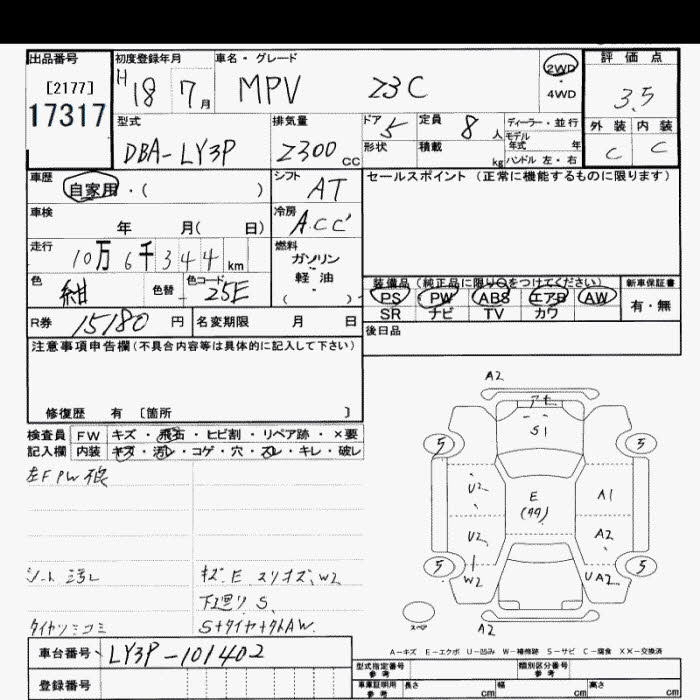 出品番号 初度登録年月 車名・グレード 2WD 評価点
[2177] H 18 7月 MPV 23C ・ 3.5
17317 4WD
型式 排気量 ドア 5 定員 8人 ディーラー・並行 外装 内装
DBA-LY3P 2300cc 形状 積載 kg モデル年式 年 C C
ハンドル 左・右
車歴 自家用・( ) シフト AT セールスポイント (正常に機能するものに限ります)
車検 年 月( 日) 冷房 A.C C'
走行 10万6千344km 燃料 ガソリン・軽油
( )
色 紺 色替 色コード 25E 装備品 (純正品に限り○をつけてください) 新車保証書
PS PW ABS エアB AW 有・無
SR ナビ TV カワ
R券 15180円 名変期限 月 日 後日品
注意事項申告欄(不具合内容等は具体的に記入して下さい)
修復歴 有 〔箇所 〕
検査員 FW キズ・飛石・ヒビ割・リペア跡・×要
記入欄 内装 キズ・汚レ・コゲ・穴・スレ・キレ・破レ
左F PW
シート
キズ E スリキズ W2
下廻り S
S+タイヤ+外AW
A2
S1
5 5
U2 E A1
(99)
U2 A2
5 5
W2 UA2
スペア
A2
A-キズ E-エクボ U-凹み W-補修跡 S-サビ C-腐食 XX-交換済
車台番号 LY3P-101402
登録番号
型式指定番号 参考 類別区分番号 参考
車庫証明用 参考 長さ cm 幅 cm 高さ cm